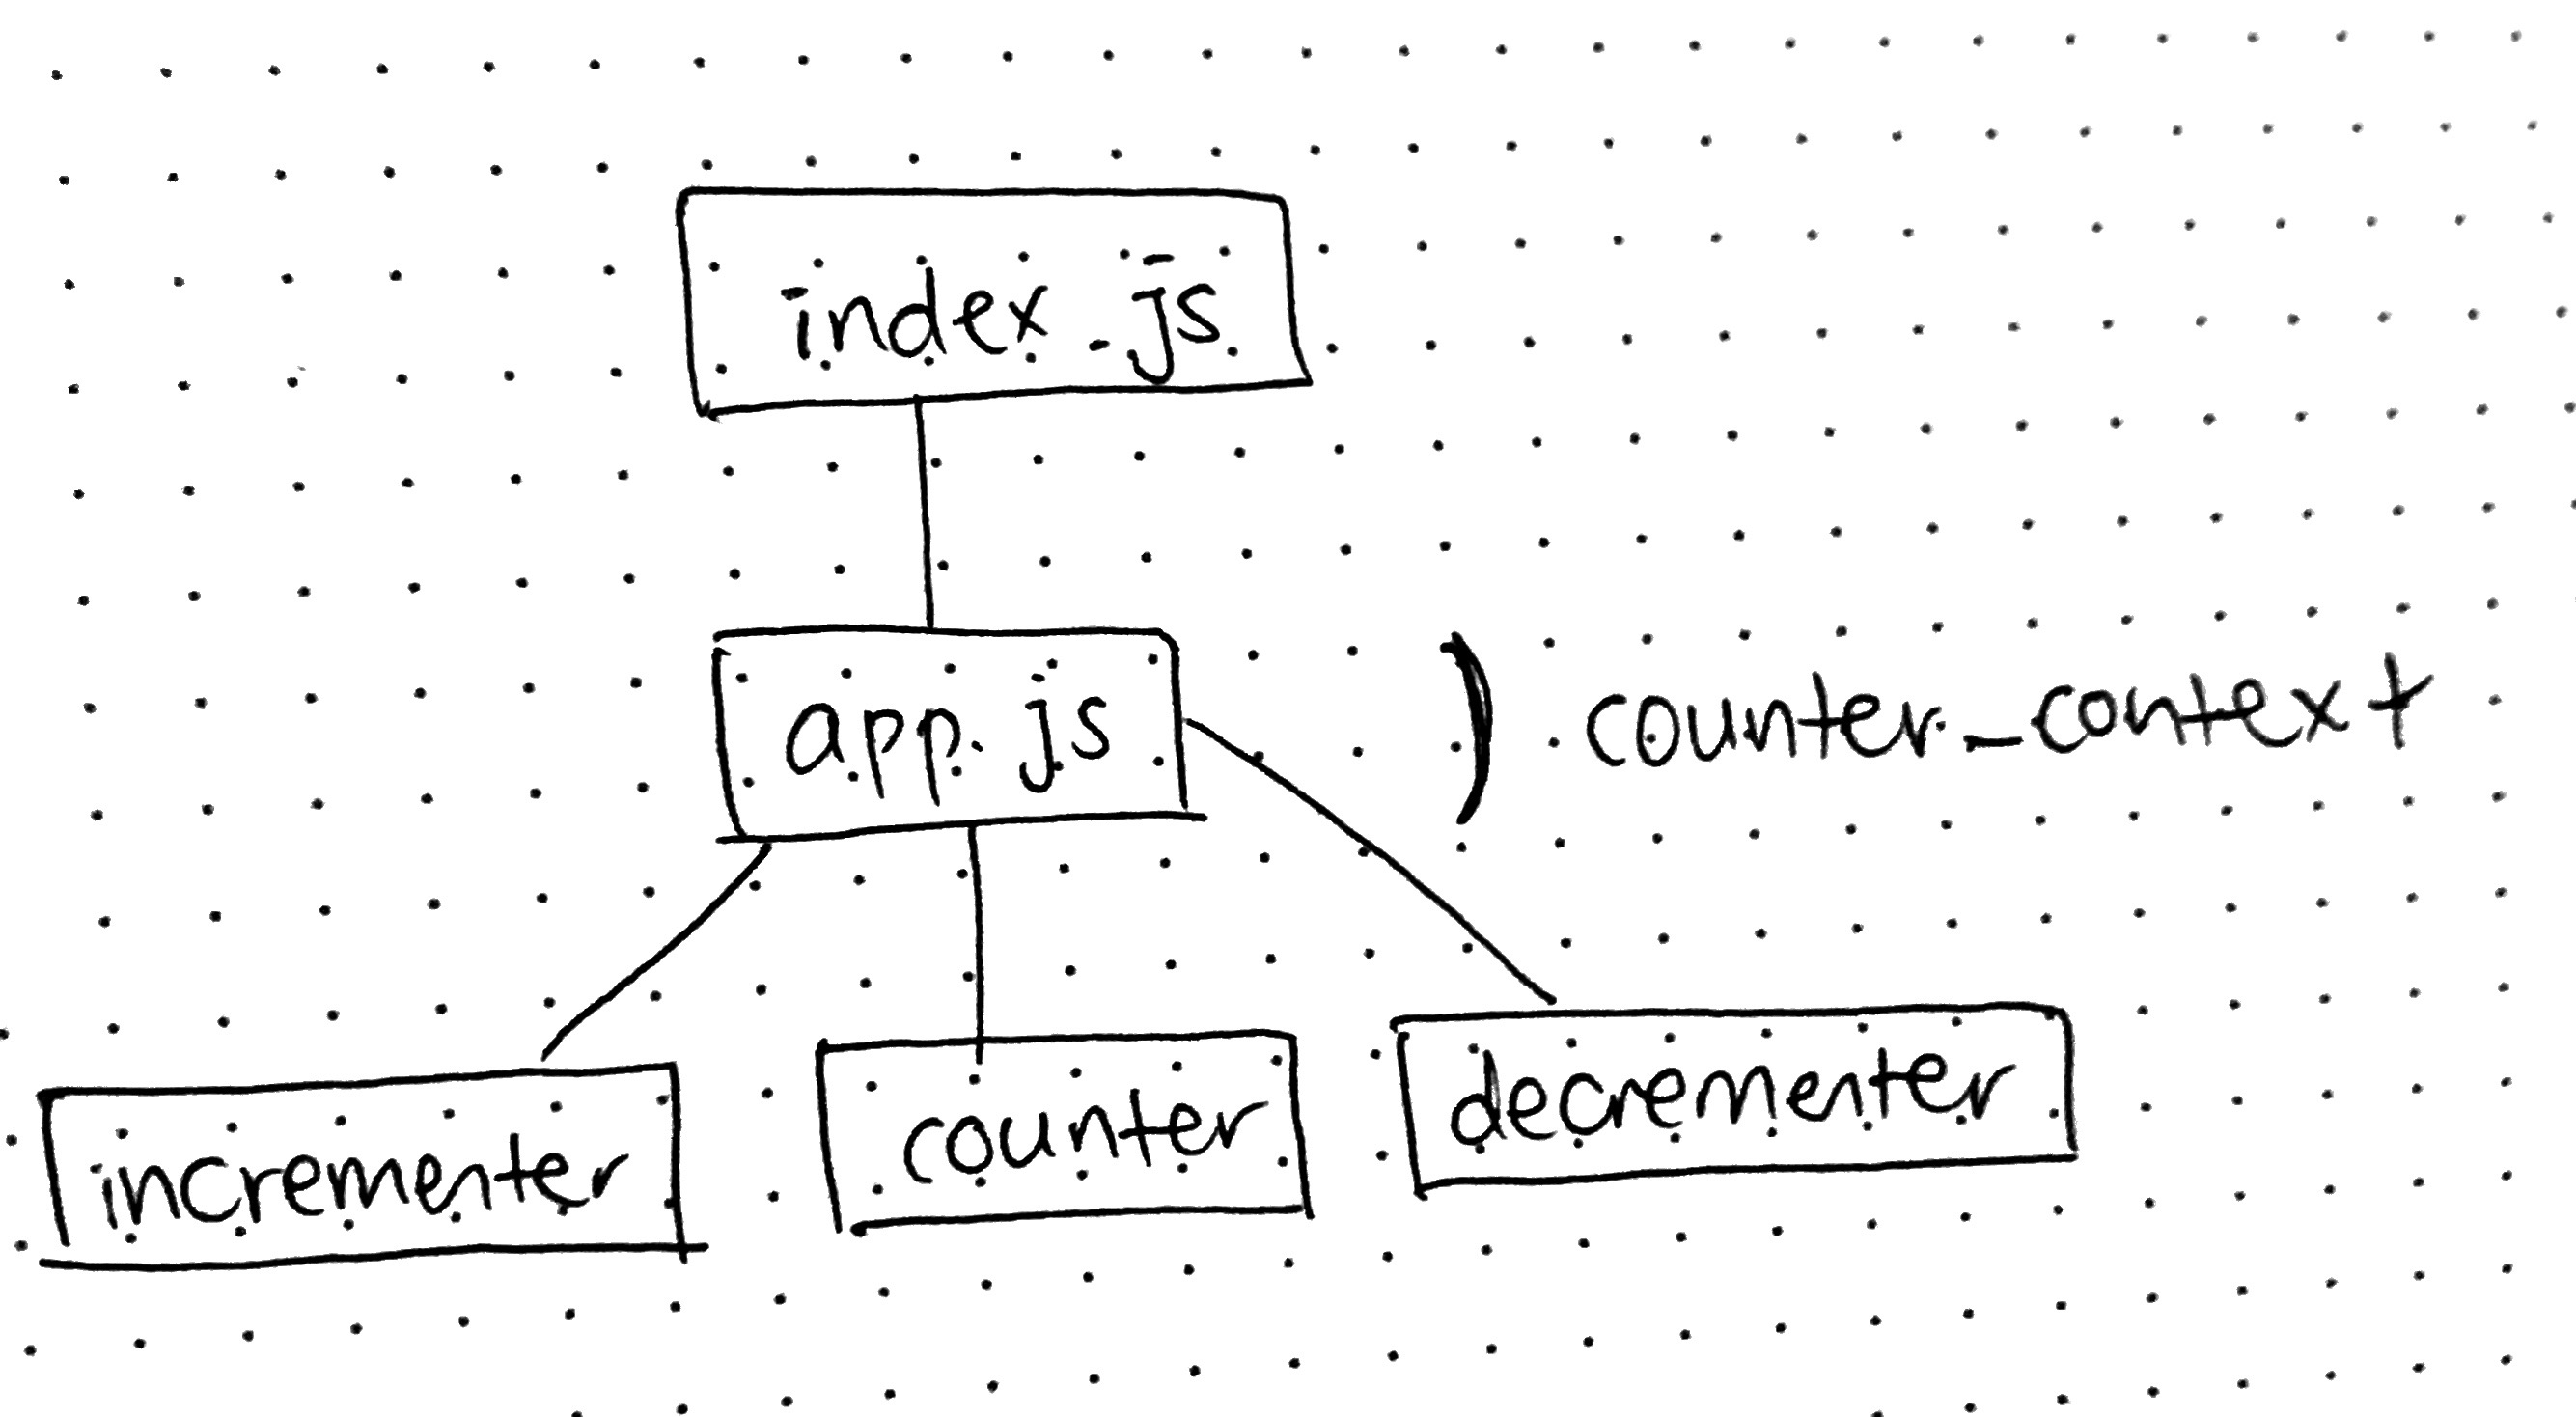 index.js
app.js
counter_context
incrementer
counter
decrementer